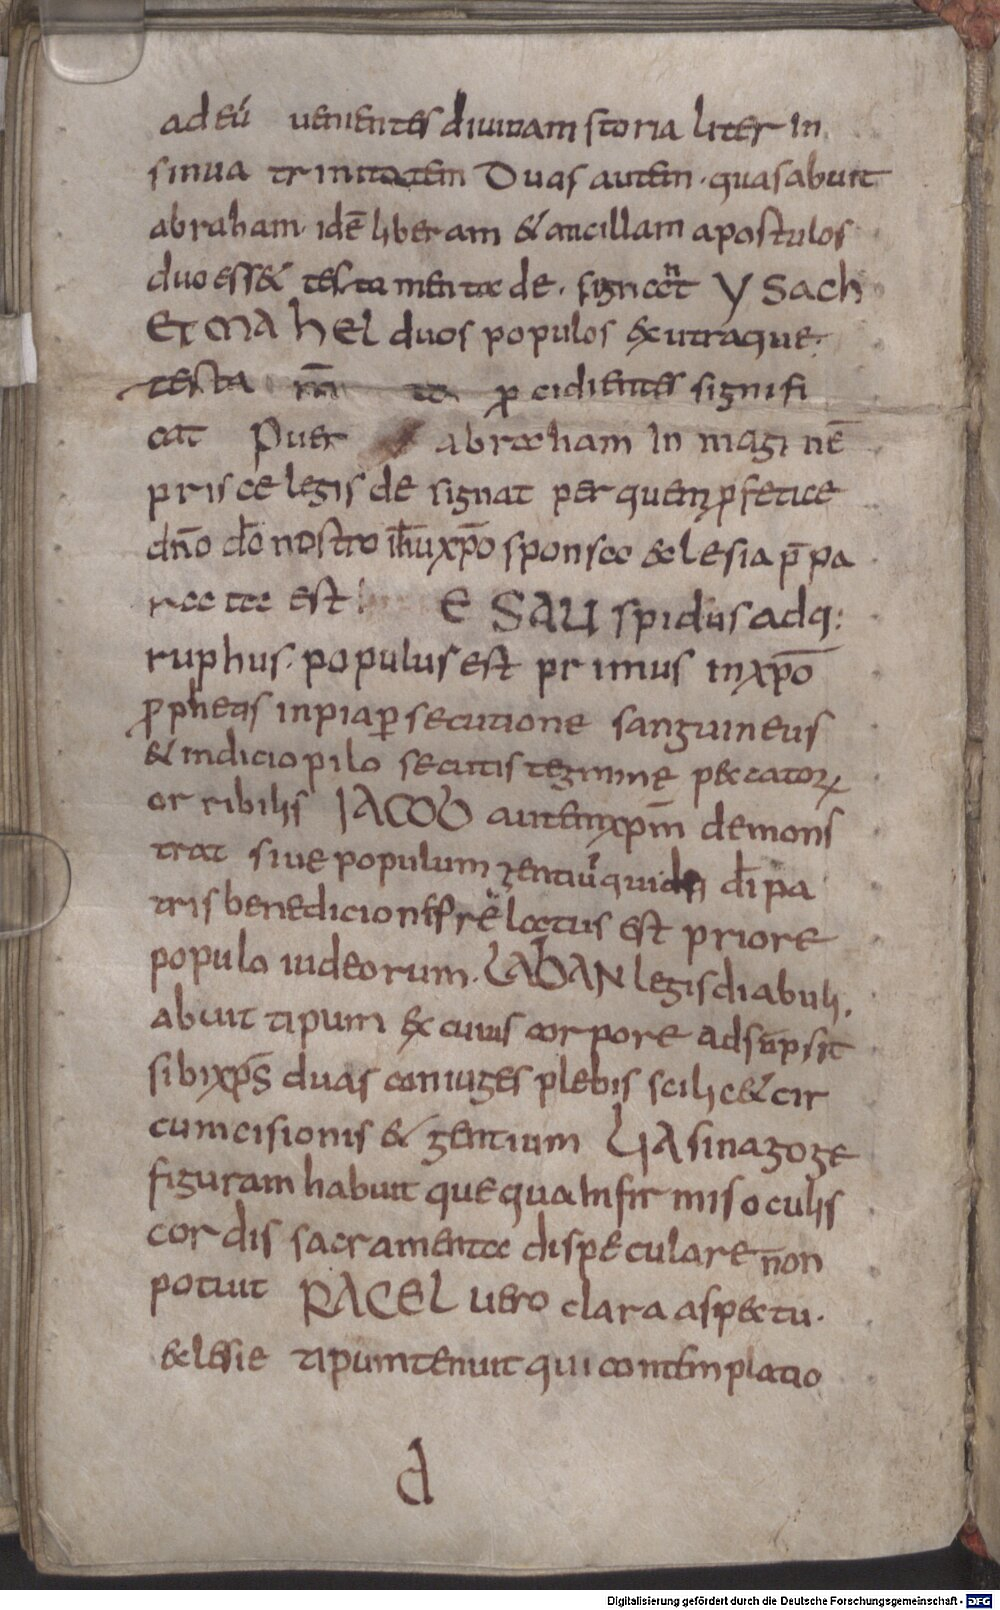 adeū uenientes diuinam storia liter in
sinua trinitatem Duas autem · quas abuit
abraham · idē liberam & ancillam apostulos
duo ess& testamenta de · signant YSach
Et MAhEL duos populos ex utraque ·
testa m̄ to p cidientes signifi
cat Puer abraham in maginē
prisce legis de signat per quem pfetice
dn̄o dō nostro ih̄u xp̄o sponsa eclesia p̄pa
rata est ESAU spidus adq:
ruphus · populus est primus in xp̄o
prophetis inpia persecutione sanguineus
& indicio pilo secutis tegmine peccator
orribilis IACOB autem xpm̄ demons
trat siue populum gentiū qui dī pa
tris benedicioneſ relatus est priore
populo iudeorum · LABAN legis diabuli ·
abuit tipum ex cuius corpore adsūpsit
sibi xp̄s duas coniuges plebis scilic& cir
cumcisionis & gentium LIA sinagoge
figuram habuit que quia infirmis oculis
cordis sacramenta dispeculare non
potuit RACEL uero clara aspectu ·
eclesie tipum tenuit qui contemplatio
d
Digitalisierung gefördert durch die Deutsche Forschungsgemeinschaft - DFG